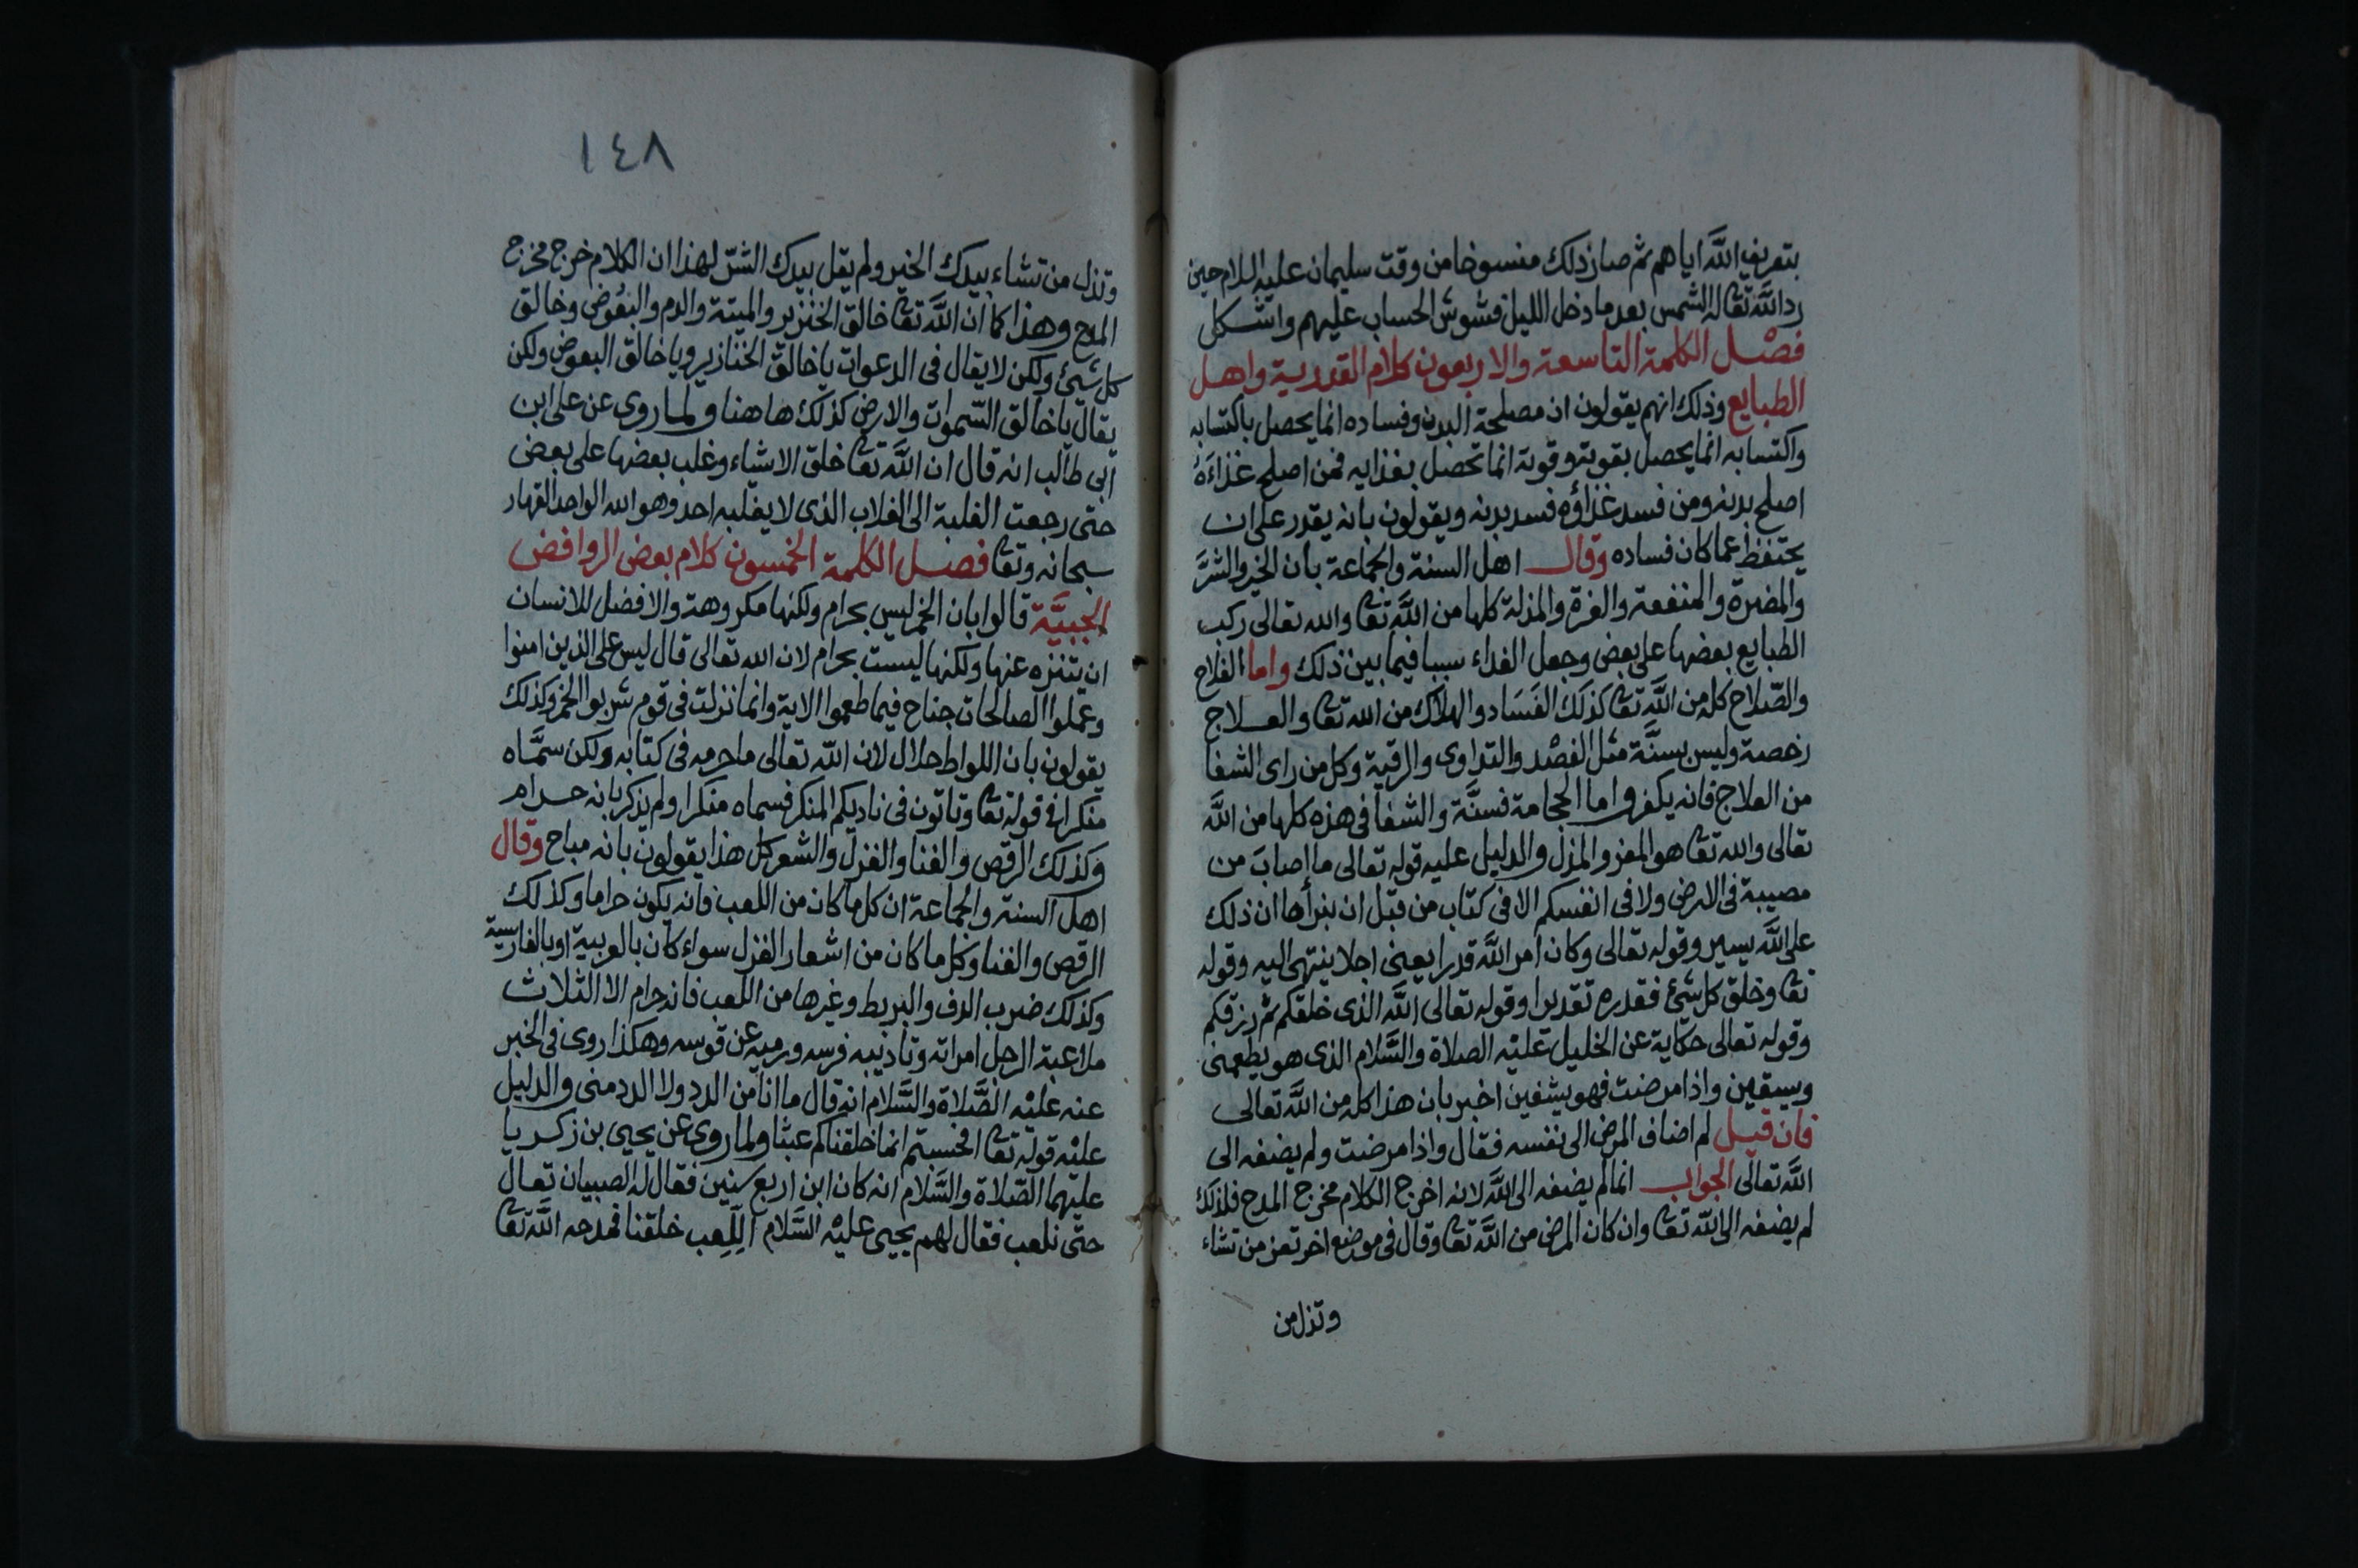 بتعريف الله اياهم ثم صار ذلك منسوخا من وقت سليمان عليه السلام حين
رد الله تعا له الشمس بعد ما دخل الليل فشوش الحساب عليهم واشكل
فصل الكلمة التاسعة والاربعون كلام القدرية واهل
الطبايع وذلك انهم يقولون ان مصلحة البدن وفساده انما يحصل باكتسابه
واكتسابه انما يحصل بقوته وقوته انما تحصل بغذايه فمن اصلح غذاءه
اصلح بدنه ومن فسد غذاؤه فسد بدنه ويقولون بانه يقدر على ان
يحتفظ عما كان فساده وقال اهل السنة والجماعة بان الخير والشر
والمضرة والمنفعة والعزة والمذلة كلها من الله تعا والله تعالى ركب
الطبايع بعضها على بعض وجعل الغداء سببا فيما بين ذلك واما الفلاح
والصلاح كله من الله تعا كذلك الفساد والهلاك من الله تعا والعلاج
رخصة وليس بسنة مثل الفصد والتداوى والرقية وكل من راى الشفا
من العلاج فانه يكفر واما الحجامة فسنة والشفا فى هذه كلها من الله
تعالى والله تعا هو المعز والمذل والدليل عليه قوله تعالى ما اصاب من
مصيبة فى الارض ولا فى انفسكم الا فى كتاب من قبل ان نبرأها ان ذلك
على الله يسير وقوله تعالى وكان امر الله قدرا يعنى اجلا ينتهى اليه وقوله
تعا وخلق كل شئ فقدره تقديرا وقوله تعالى الله الذى خلقكم ثم رزقكم
وقوله تعالى حكاية عن الخليل عليه الصلاة والسلام الذى هو يطعمنى
ويسقين واذا مرضت فهو يشفين اخبر بان هذا كله من الله تعالى
فان قيل لم اضاف المرض الى نفسه فقال واذا مرضت ولم يضفه الى
الله تعالى الجواب انما لم يضفه الى الله لانه اخرج الكلام مخرج المدح فلذلك
لم يضفه الى الله تعا وان كان المرض من الله تعا وقال فى موضع اخر تعز من تشاء
وتذل من
١٤٨
وتذل من تشاء بيدك الخير ولم يقل بيدك الشر لهذا ان الكلام خرج مخرج
المدح وهذا كما ان الله تعا خالق الخنزير والميتة والدم والبعوض وخالق
كل شيئ ولكن لا يقال فى الدعوات يا خالق الخنازير ويا خالق البعوض ولكن
يقال يا خالق السموات والارض كذلك هاهنا ولما روى عن على ابن
ابى طالب انه قال ان الله تعا خلق الاشياء وغلب بعضها على بعض
حتى رجعت الغلبة الى الغلاب الذى لا يغلبه احد وهو الله الواحد القهار
سبحانه وتعا فصل الكلمة الخمسون كلام بعض الروافض
الجبية قالوا بان الخمر ليس بحرام ولكنها مكروهة والافضل للانسان
ان يتنزه عنها ولكنها ليست بحرام لان الله تعالى قال ليس على الذين امنوا
وعملوا الصالحات جناح فيما طعموا الاية وانما نزلت فى قوم شربوا الخمر وكذلك
يقولون بان اللواط حلال لان الله تعالى ما حرمه فى كتابه ولكن سماه
منكرا فى قوله تعا وتاتون فى ناديكم المنكر فسماه منكرا ولم يذكر بانه حرام
وكذلك الرقص والغنا والغزل والشعر كل هذا يقولون بانه مباح وقال
اهل السنة والجماعة ان كل ما كان من اللعب فانه يكون حراما وكذلك
الرقص والغنا وكل ما كان من اشعار الغزل سواء كان بالعربية او بالفارسية
وكذلك ضرب الدف والبربط وغيرها من اللعب فانه حرام الا الثلاث
ملاعبة الرجل امراته وتاديبه فرسه ورميه عن قوسه وهكذا روى فى الخبر
عنه عليه الصلاة والسلام انه قال ما انا من الدد ولا الدد منى والدليل
عليه قوله تعا افحسبتم انما خلقناكم عبثا ولما روى عن يحيى بن زكريا
عليهما الصلاة والسلام انه كان ابن اربع سنين فقال له الصبيان تعال
حتى نلعب فقال لهم يحيى عليه السلام اللعب خلقنا فمدحه الله تعا